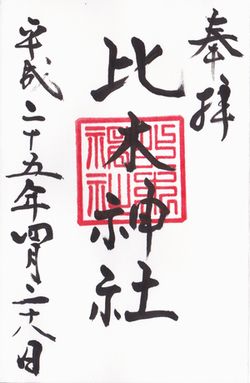 奉拝
比木神社
平成二十五年四月二十八日